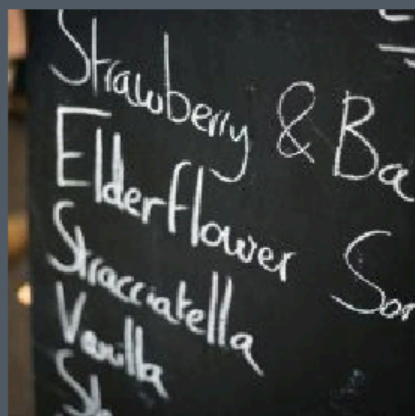 Strawberry & Ba
Elderflower Sor
Stracciatella
Vanilla
St